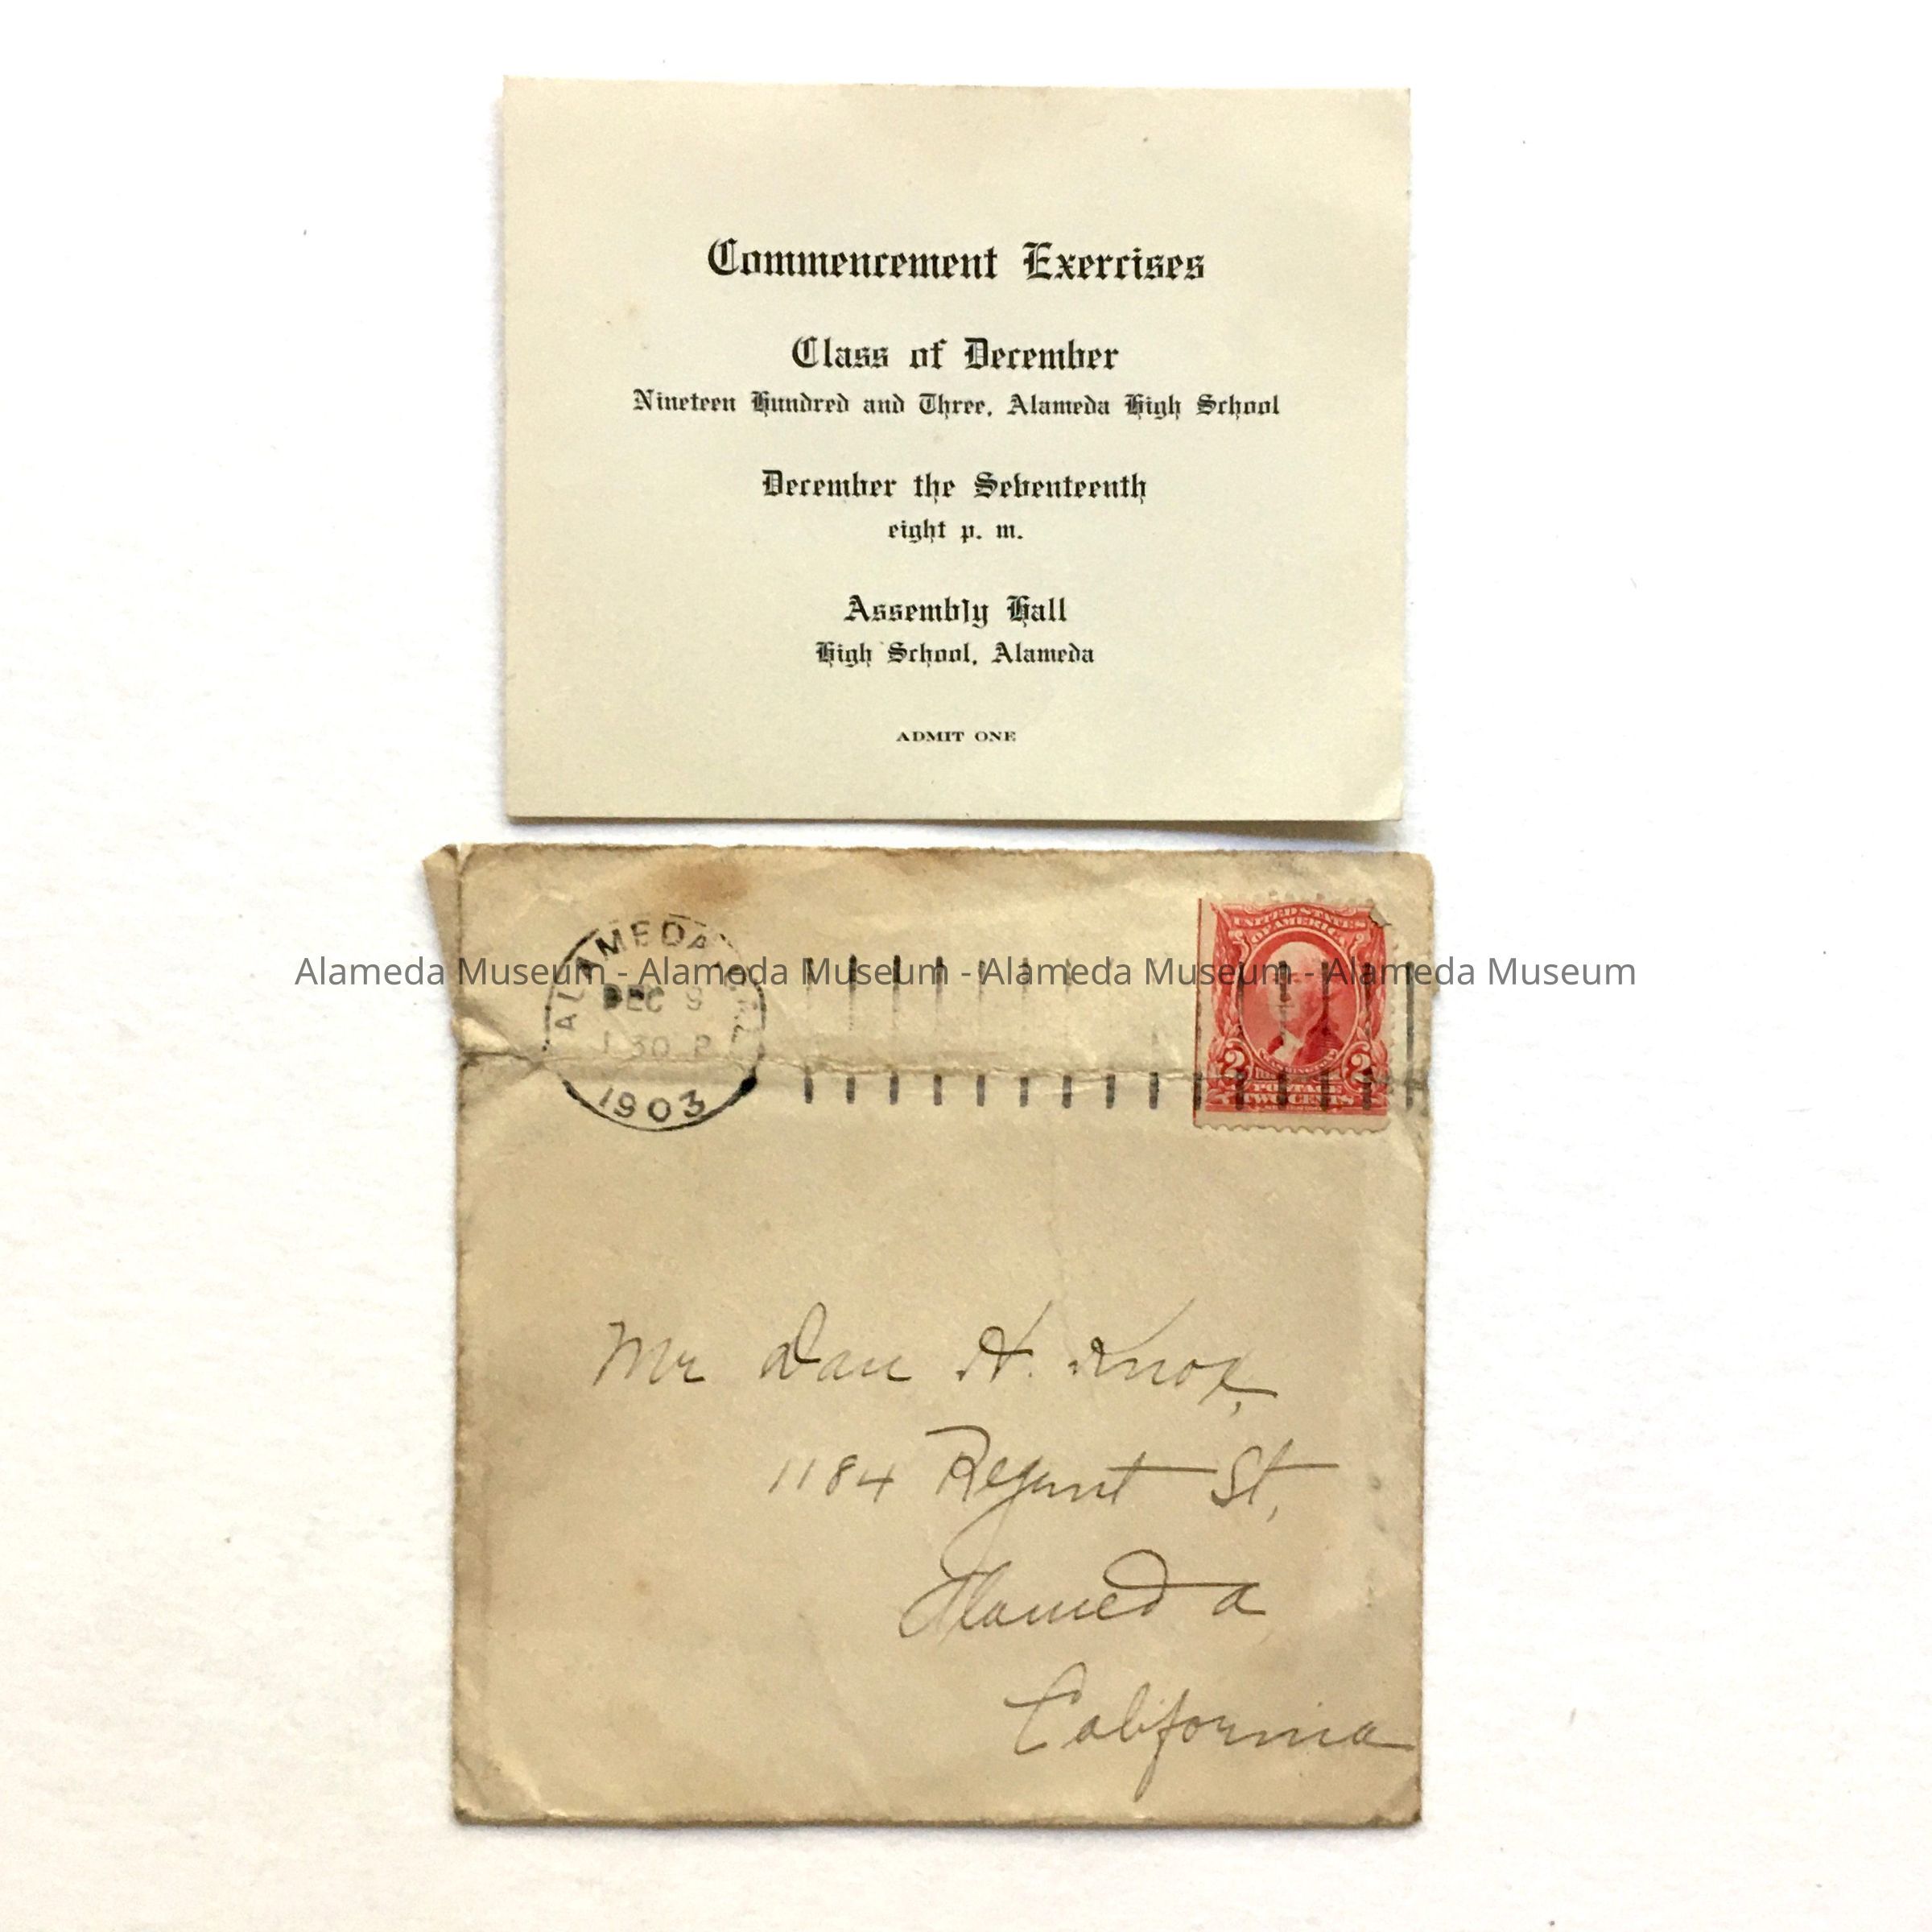 Commencement Exercises
Class of December
Nineteen Hundred and Three, Alameda High School
December the Seventeenth
eight p. m.
Assembly Hall
High School, Alameda
ADMIT ONE
ALAMEDA
DEC 9
1 30 P
1903
UNITED STATES
OF AMERICA
2 2
POSTAGE
TWO CENTS
Alameda Museum - Alameda Museum - Alameda Museum - Alameda Museum
Mr Dan H. Knox,
1184 Regent St,
Alameda
California